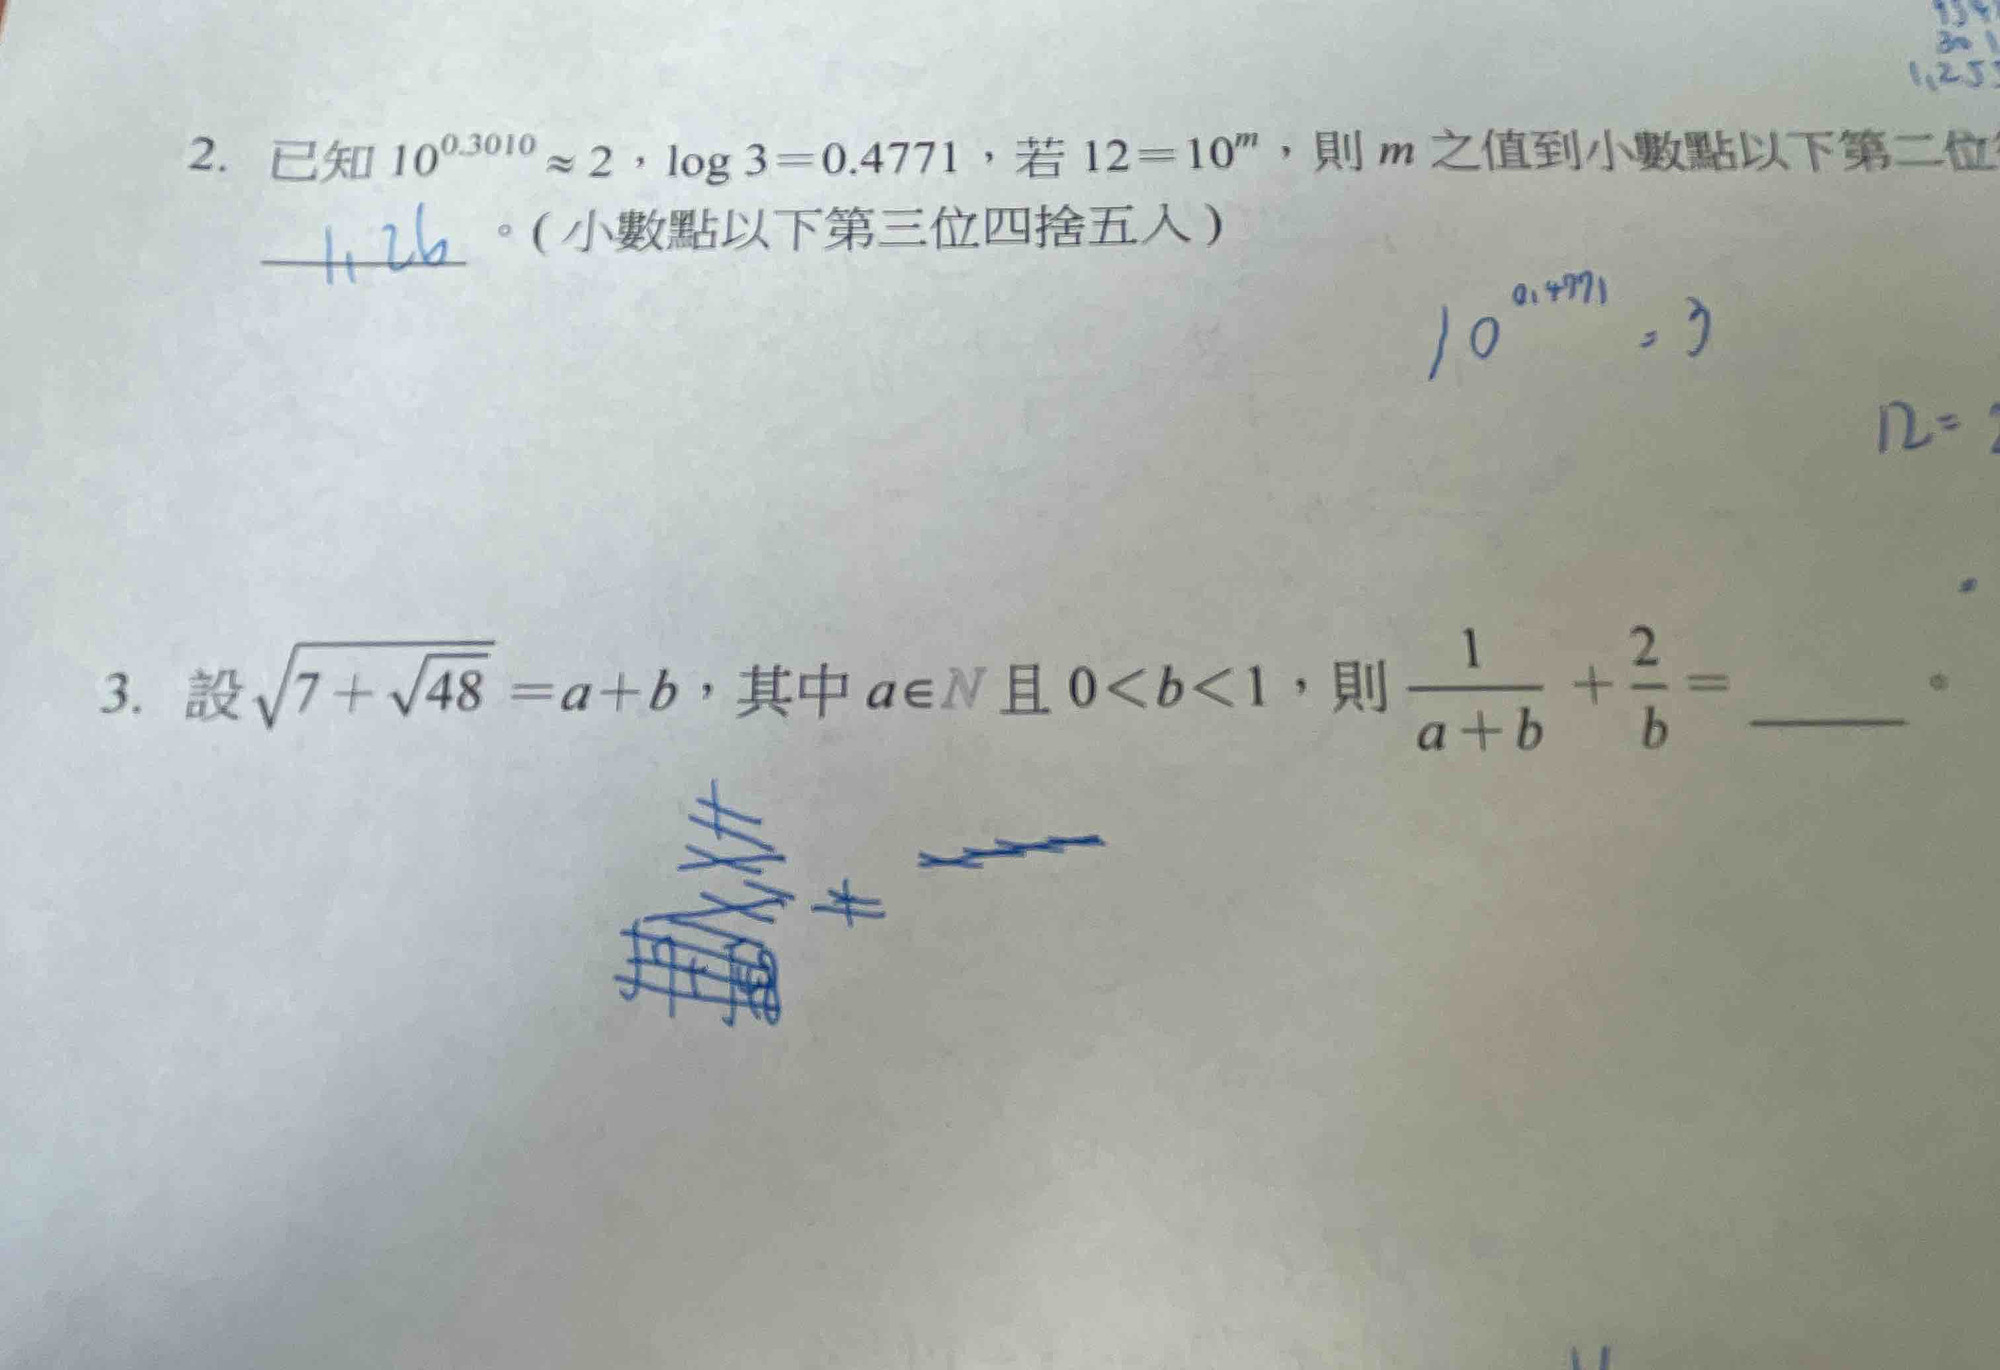 301
1,255
2. 已知 10^0.3010 ≈ 2，log 3＝0.4771，若 12＝10^m，則 m 之值到小數點以下第二位
1,26 。(小數點以下第三位四捨五入)
10^0.4771 = 3
12=
3. 設 √(7＋√48) ＝a＋b，其中 a∈N 且 0＜b＜1，則 1/(a＋b) ＋ 2/b ＝ ____ 。